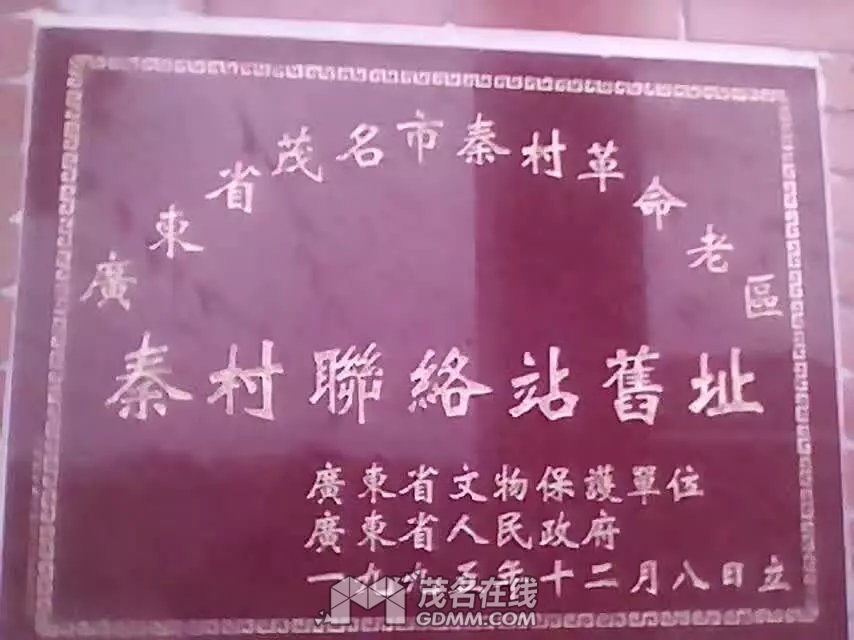 廣東省茂名市秦村革命老區
秦村聯絡站舊址
廣東省文物保護單位
廣東省人民政府
一九九五年十二月八日立
茂名在线
GDMM.COM